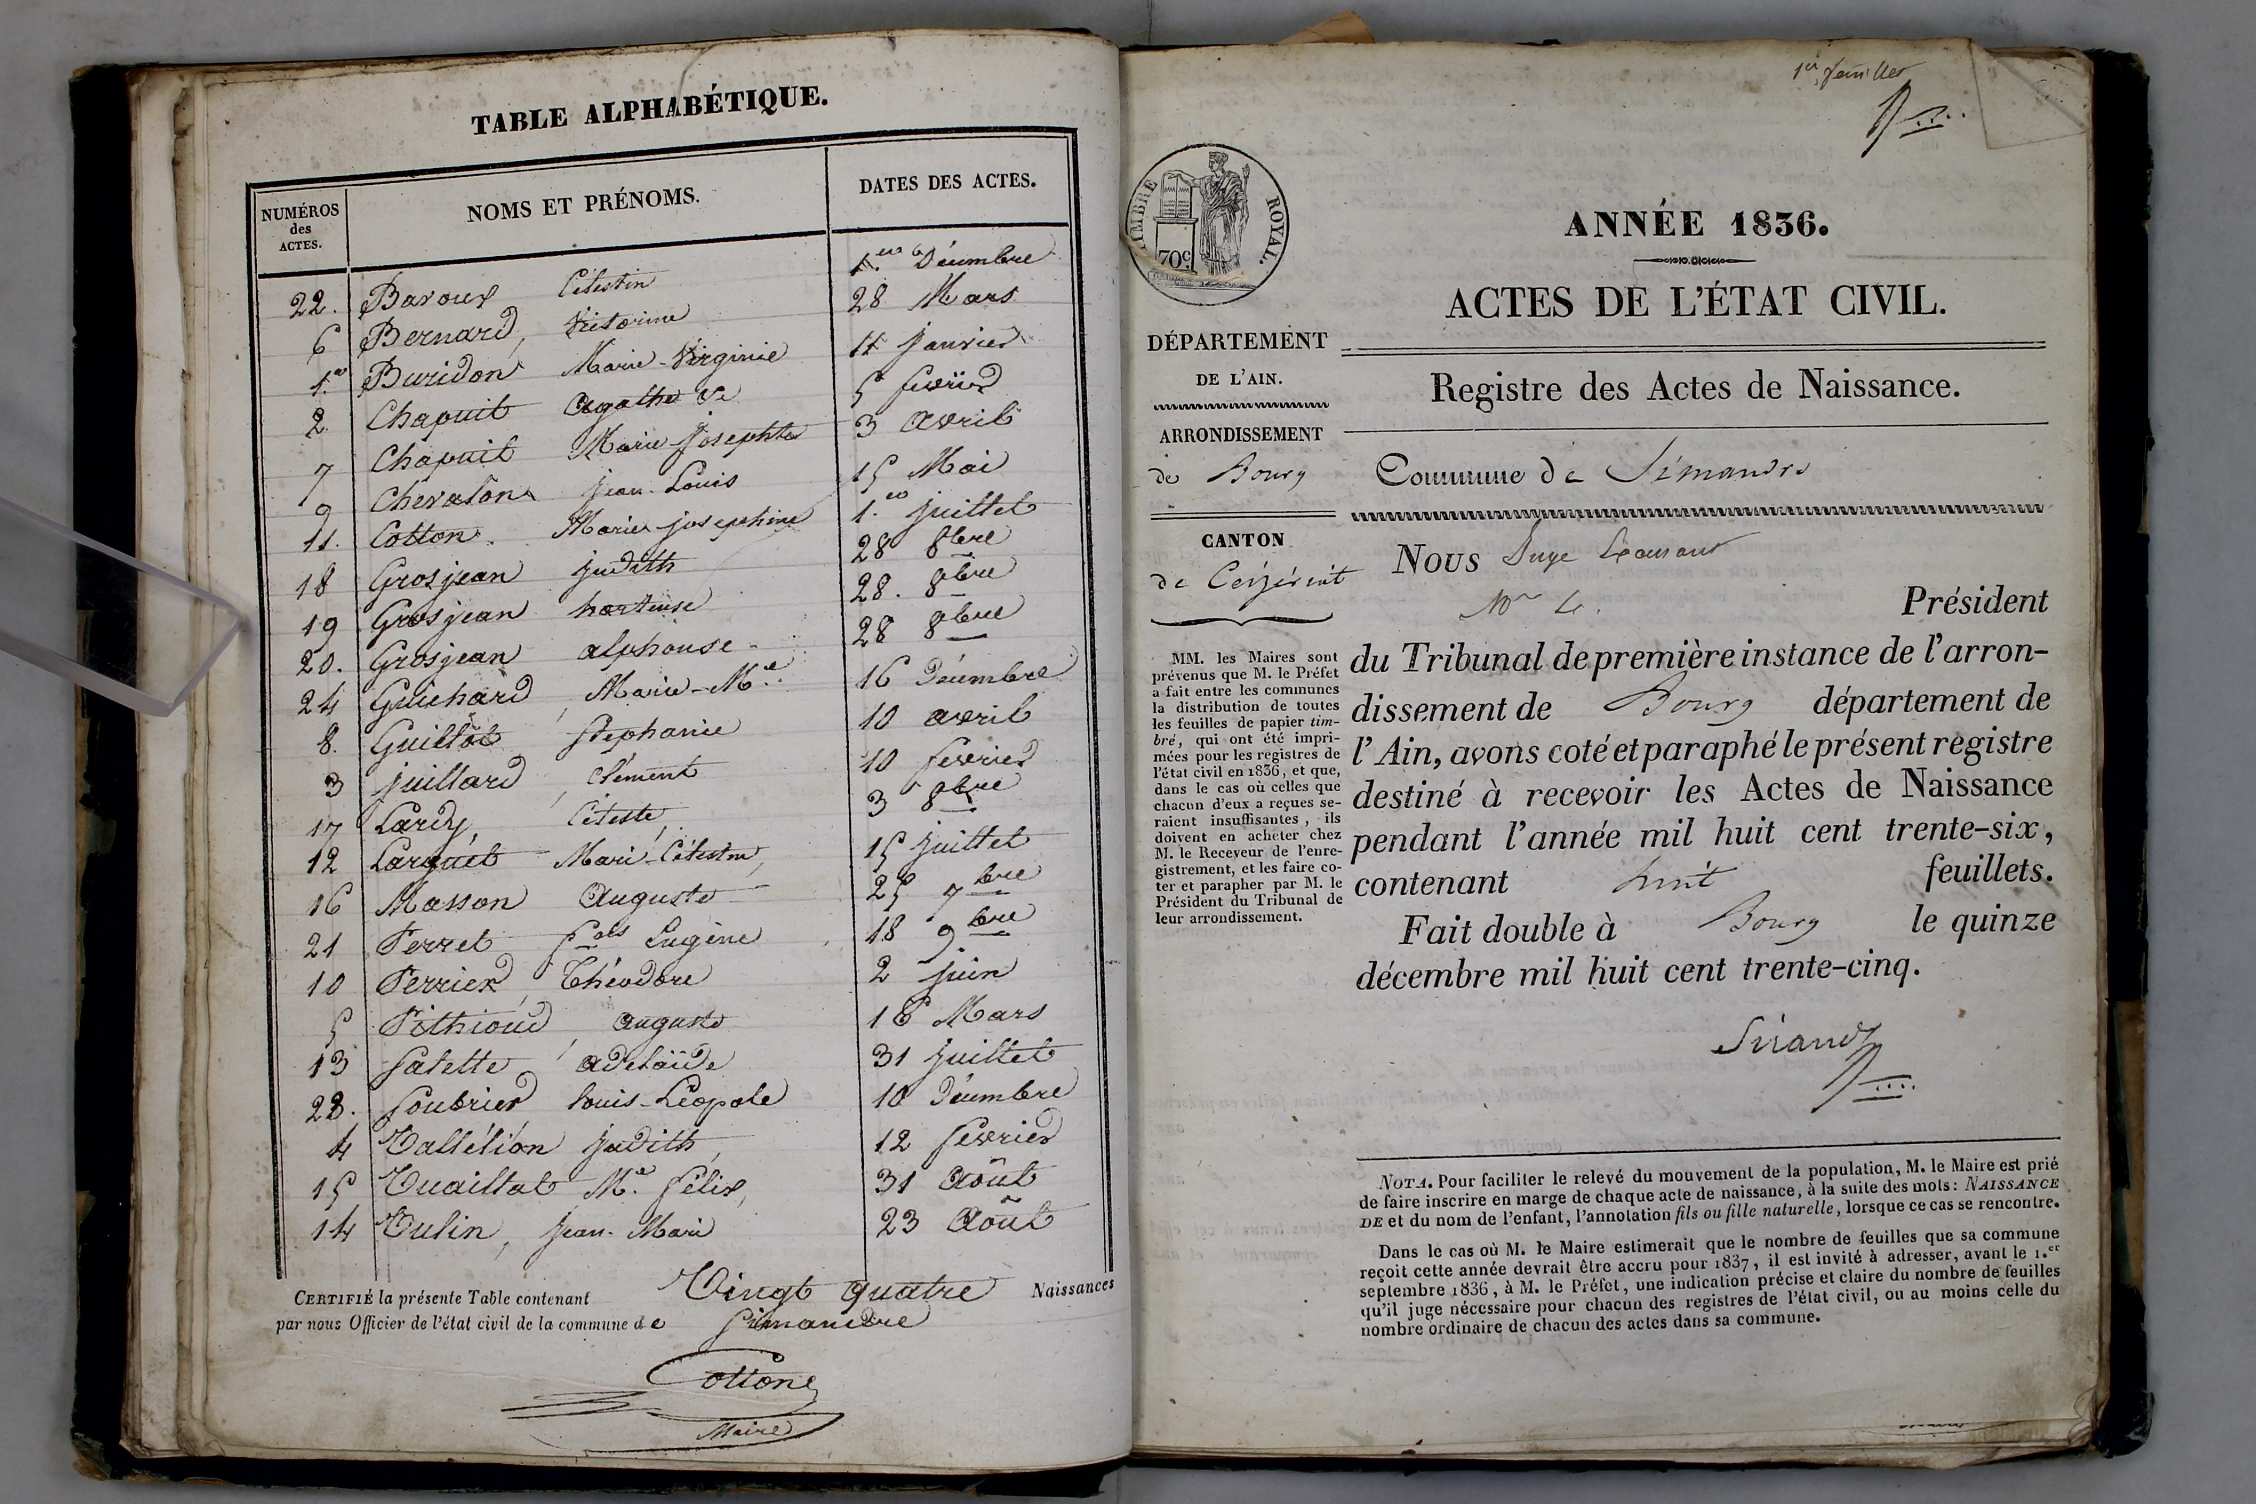 TABLE ALPHABÉTIQUE.
NUMÉROS des ACTES. NOMS ET PRÉNOMS. DATES DES ACTES.
22. Baroux Célestin 1.er Décembre
6 Bernard, Victorine 28 Mars
1.er Buridon Marie-Virginie 4 janvier
2. Chapuit Agathe 5 fevrier
7 Chapuit Marie Josephte 3 avril
9 Chevalon jean-Louis 15 Mai
11. Cotton Marie josephine 1.er juillet
18 Grosjean judith 28 8bre
19 Grosjean hortense 28. 8bre
20. Grosjean alphonse 28 8bre
24 Guichard, Marie-M.ie 16 Décembre
8. Guillot Stéphanie 10 avril
3 juillard, Clément 10 fevrier
17 Lardy, Céleste, 3 8bre
12 Larguet Marie-Célestine, 15 juillet
16 Masson Auguste 25 7bre
21 Perret f.ois Eugène 18 9bre
10 Perrier, Théodore 2 juin
5 Pithioud auguste 16 Mars
13 Salette adelaïde 31 juillet
23. Soubrier louis-Léopole 10 Décembre
4 Tallélion judith, 12 fevrier
15 Tuaillat M.e félix, 31 Août
14 Tulin, jean-Marie 23 Août
CERTIFIÉ la présente Table contenant Vingt quatre Naissances
par nous Officier de l'état civil de la commune de Simandre
Cotton
Maire
1er feuillet
TIMBRE ROYAL.
70c.
ANNÉE 1836.
ACTES DE L'ÉTAT CIVIL.
DÉPARTEMENT
DE L'AIN.
Registre des Actes de Naissance.
ARRONDISSEMENT
de Bourg
Commune de Simandre
CANTON
de Ceyzériat
Nous Juge
Mr le Président
du Tribunal de première instance de l'arron-
dissement de Bourg département de
l'Ain, avons coté et paraphé le présent registre
destiné à recevoir les Actes de Naissance
pendant l'année mil huit cent trente-six,
contenant huit feuillets.
Fait double à Bourg le quinze
décembre mil huit cent trente-cinq.
Sirand
MM. les Maires sont
prévenus que M. le Préfet
a fait entre les communes
la distribution de toutes
les feuilles de papier tim-
bré, qui ont été impri-
mées pour les registres de
l'état civil en 1836, et que,
dans le cas où celles que
chacun d'eux a reçues se-
raient insuffisantes, ils
doivent en acheter chez
M. le Receveur de l'enre-
gistrement, et les faire co-
ter et parapher par M. le
Président du Tribunal de
leur arrondissement.
NOTA. Pour faciliter le relevé du mouvement de la population, M. le Maire est prié
de faire inscrire en marge de chaque acte de naissance, à la suite des mots: NAISSANCE
DE et du nom de l'enfant, l'annotation fils ou fille naturelle, lorsque ce cas se rencontre.
Dans le cas où M. le Maire estimerait que le nombre de feuilles que sa commune
reçoit cette année devrait être accru pour 1837, il est invité à adresser, avant le 1.er
septembre 1836, à M. le Préfet, une indication précise et claire du nombre de feuilles
qu'il juge nécessaire pour chacun des registres de l'état civil, ou au moins celle du
nombre ordinaire de chacun des actes dans sa commune.